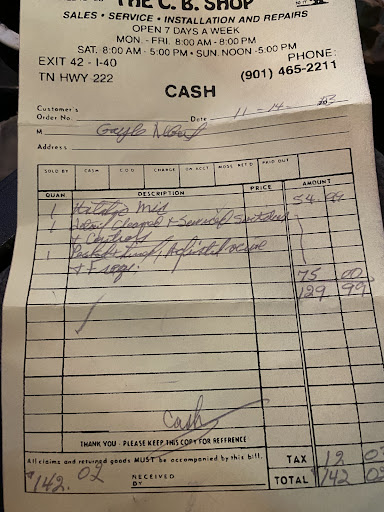 THE C. B. SHOP
SALES • SERVICE • INSTALLATION AND REPAIRS
OPEN 7 DAYS A WEEK
MON. - FRI. 8:00 AM - 8:00 PM
SAT. 8:00 AM - 5:00 PM • SUN. NOON - 5:00 PM
EXIT 42 - I-40 PHONE:
TN HWY 222 (901) 465-2211
CASH
Customer's
Order No. Date 11-14
M Gayle
Address
SOLD BY CASH C.O.D. CHARGE ON ACCT. MDSE. RET'D. PAID OUT
QUAN. DESCRIPTION PRICE AMOUNT
1 Mid 54.99
1 Cleaned + Serviced Switches
+ Controls
1 Adjusted
+
75 00
129 99
Cash
THANK YOU - PLEASE KEEP THIS COPY FOR REFERENCE
All claims and returned goods MUST be accompanied by this bill. TAX 12 03
$142.02 RECEIVED BY TOTAL 142 02